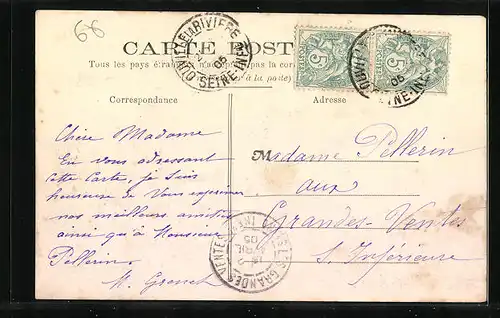 66
CARTE POST
Tous les pays étran n'acceptent pas la cor
à la poste)
Correspondance
Adresse
OUVILLE LA RIVIERE
05
SEINE-INF
5
5
05
SEINE-INF
Chère Madame
En vous adressant
cette Carte, je suis
heureuse de Vous exprimer
nos meilleurs amitiés
ainsi qu'à Monsieur
Pellerin
M.
M
Madame Pellerin
aux
Grandes-Ventes
S. Inférieure
LES GRANDES VENTES
2
AVRIL
05